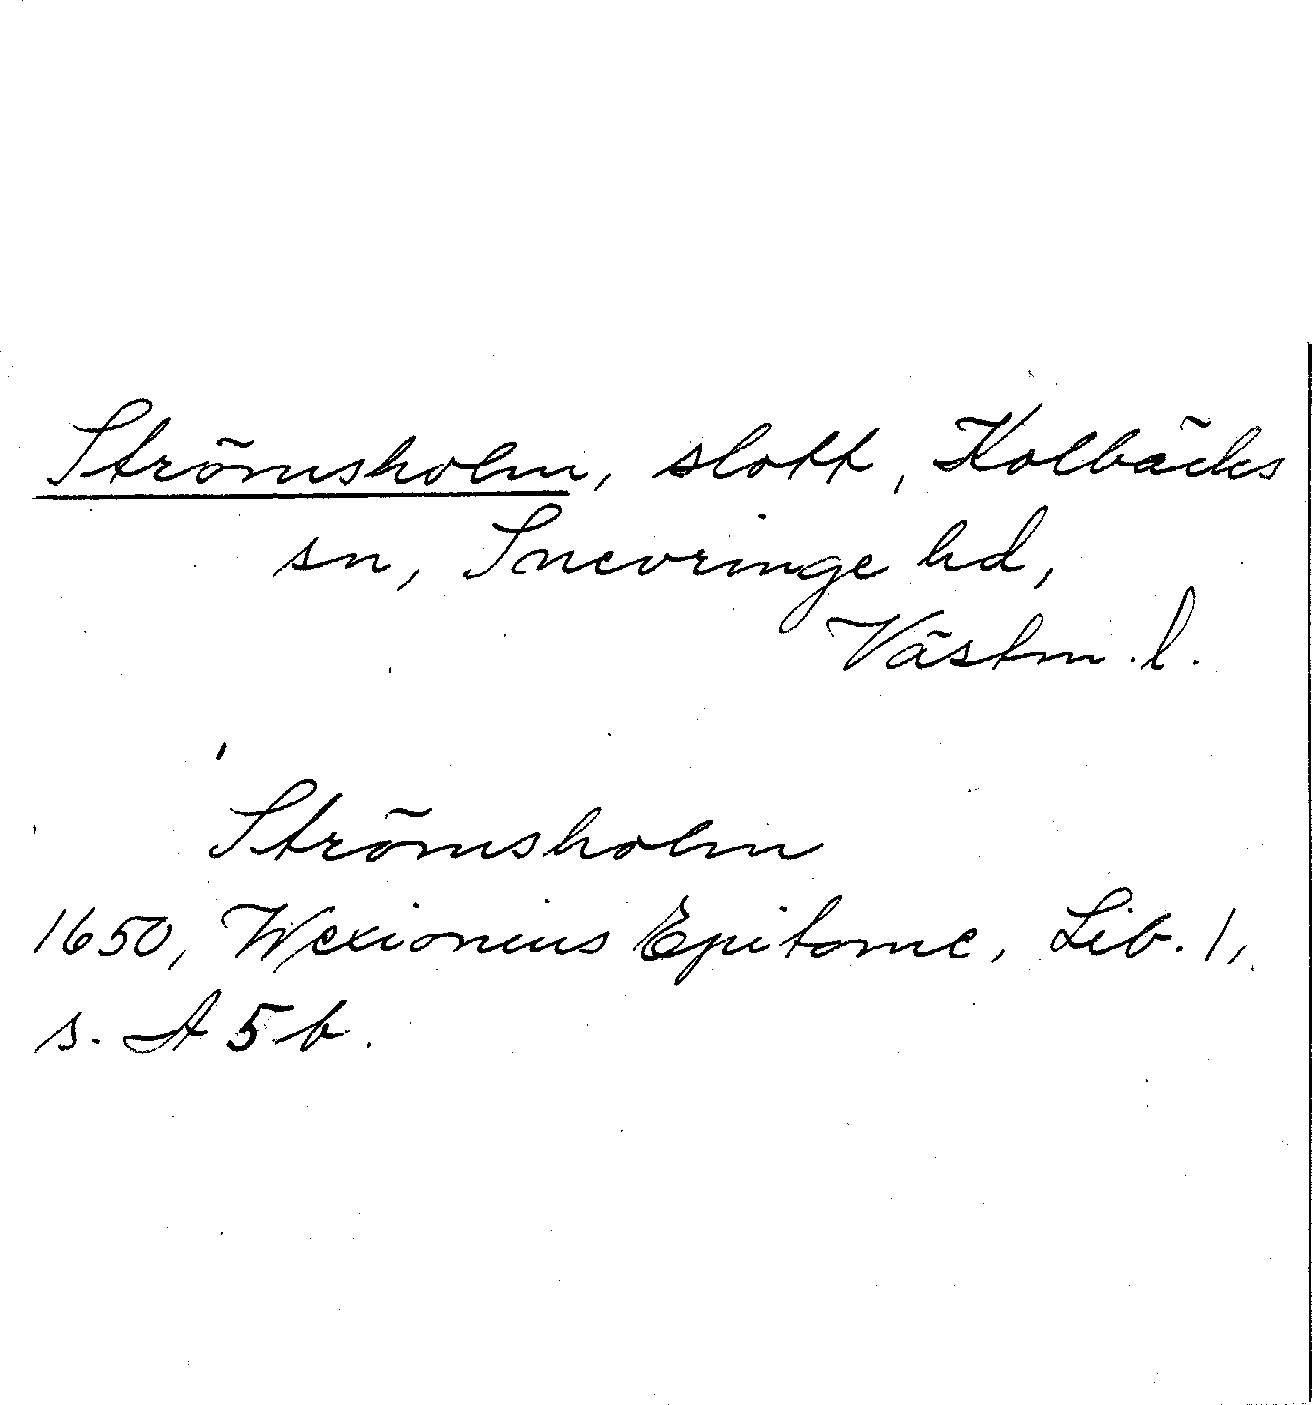 Strömsholm, slott, Kolbäcks
sn, Snevringe hd,
Västm. l.
Strömsholm
1650, Wexionius Epitome, Lib. 1,
s. A 5 b.